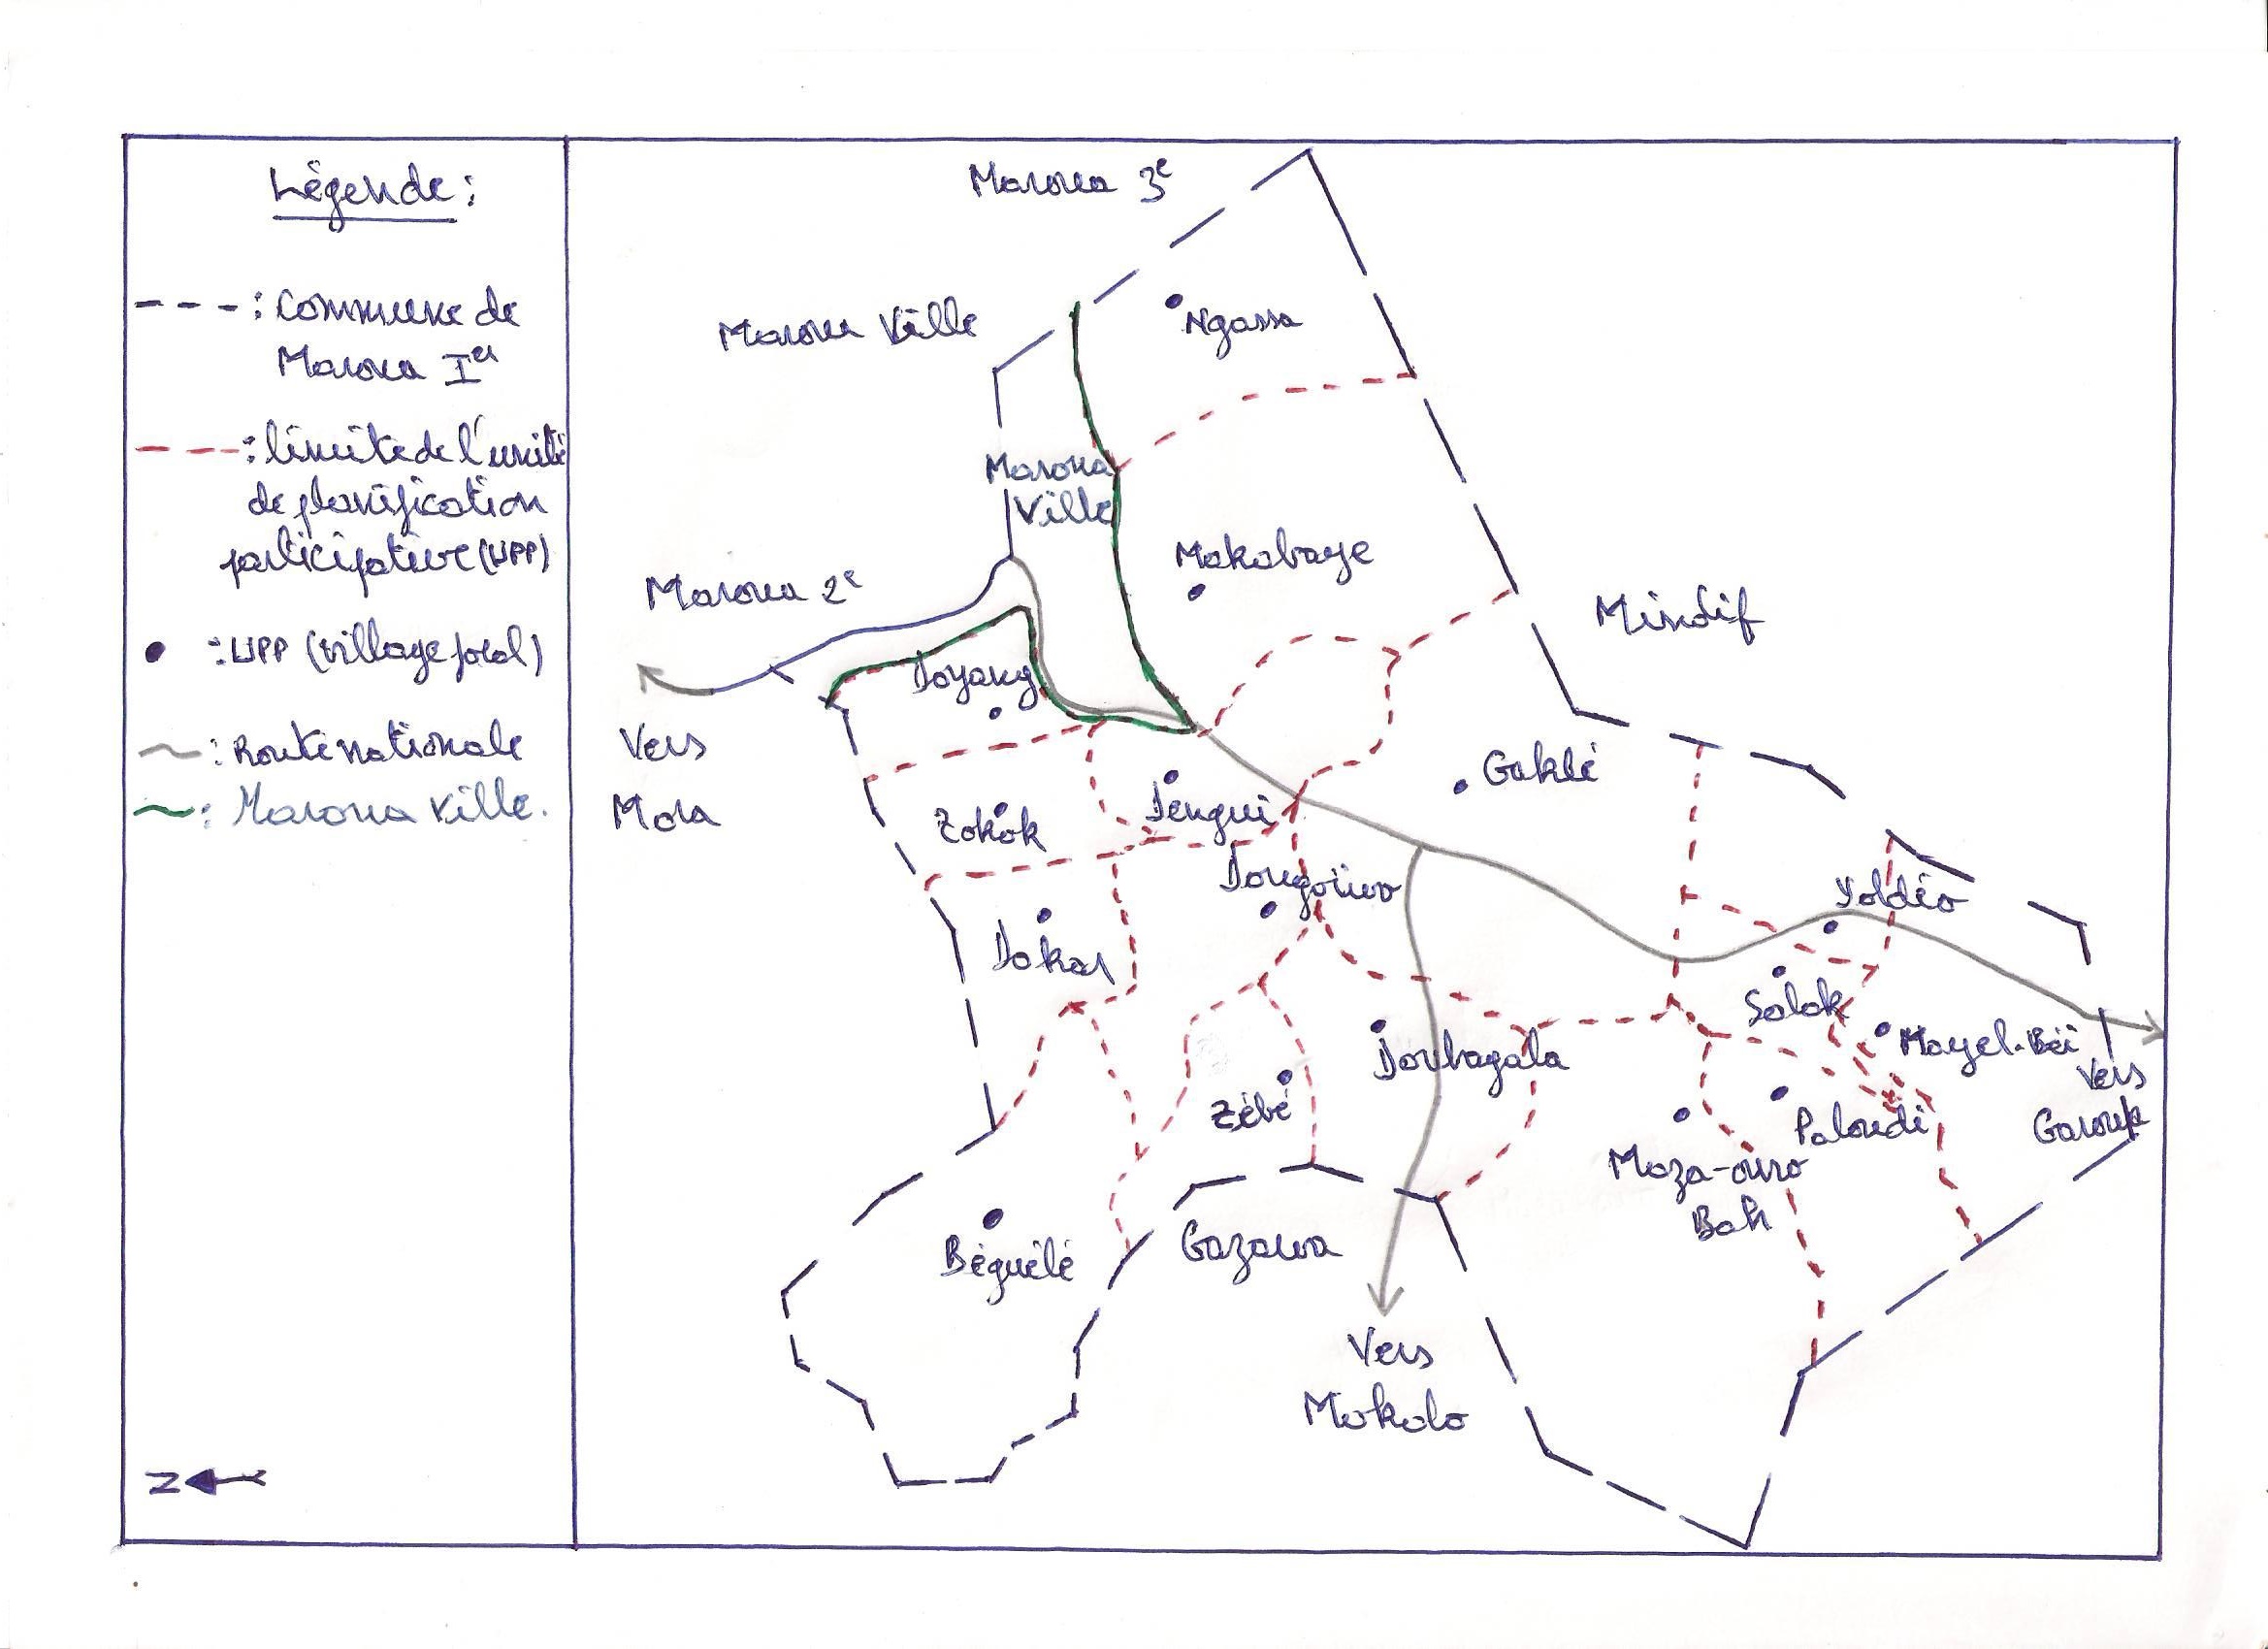 Légende :
- - - : Commune de
Maroua Ier
- - - : limite de l'unité
de planification
participative (UPP)
• : UPP (village focal)
~ : Route nationale
~ : Maroua Ville.
N
Maroua 3e
Ngassa
Maroua Ville
Maroua
Ville
Makabaye
Maroua 2e
Mindif
Doyang
Vers
Mora
Gaklé
Zokok
Dengui
Dougoïwo
Yoldéo
Dakar
Salak
Doulagala
Mayel-Béï
Vers
Garoua
Zébé
Paloudi
Maza-ouro
Bah
Béguélé
Gazawa
Vers
Mokolo